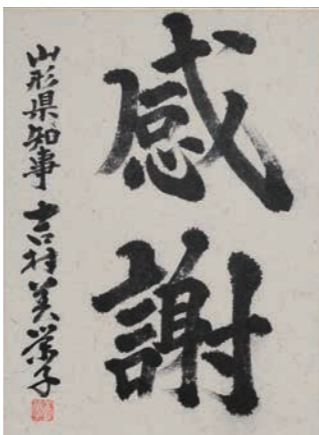 感謝
山形県知事 吉村美栄子